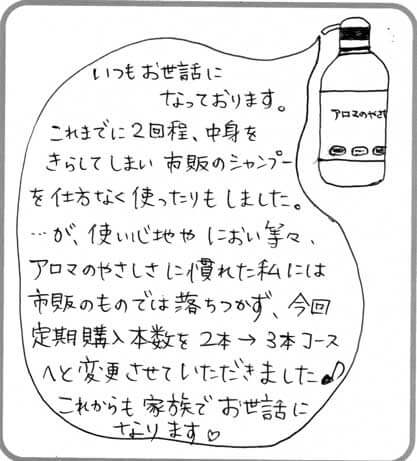 いつもお世話に
なっております。
これまでに2回程、中身を
きらしてしまい市販のシャンプー
を仕方なく使ったりもしました。
…が、使い心地や におい等々、
アロマのやさしさに慣れた私には
市販のものでは落ちつかず、今回
定期購入本数を2本→3本コース
へと変更させていただきました♪
これからも家族でお世話に
なります♡
アロマのやさ